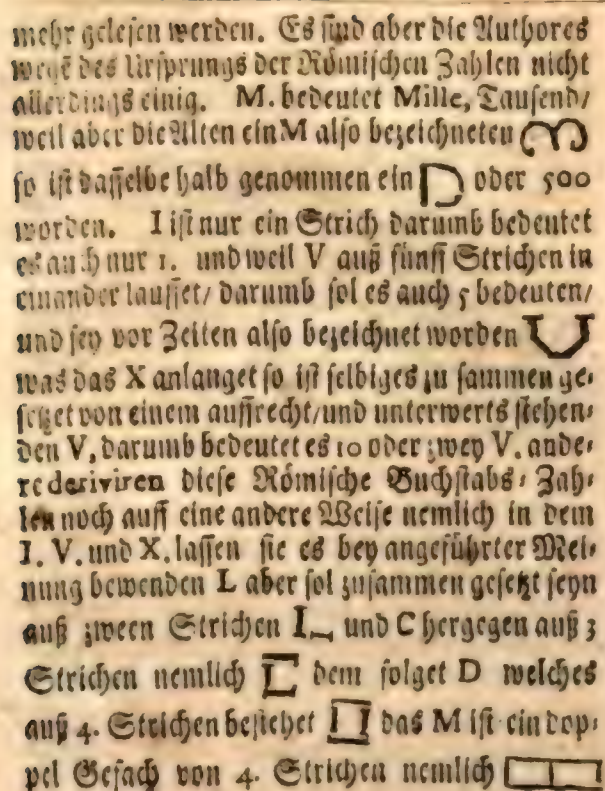 mehr gelesen werden. Es sind aber die Authores
wegẽ des Ursprungs der Römischen Zahlen nicht
allerdings einig. M. bedeutet Mille, Tausend/
weil aber die Alten ein M also bezeichneten
so ist dasselbe halb genommen ein D oder 500
worden. I ist nur ein Strich darumb bedeutet
es auch nur 1. und weil V auß fünff Strichen in
einander lauffet/ darumb sol es auch 5 bedeuten/
und sey vor Zeiten also bezeichnet worden
was das X anlanget so ist selbiges zu sammen ge-
setzet von einem auffrecht/und unterwerts stehen-
den V, darumb bedeutet es 10 oder zwey V. ande-
re deriviren diese Römische Buchstabs-Zah-
len noch auff eine andere Weise nemlich in dem
I. V. und X. lassen sie es bey angeführter Mei-
nung bewenden L aber sol zusammen gesetzt seyn
auß zween Strichen I_ und C hergegen auß 3
Strichen nemlich dem folget D welches
auß 4. Strichen bestehet das M ist ein dop-
pel Gefach von 4. Strichen nemlich